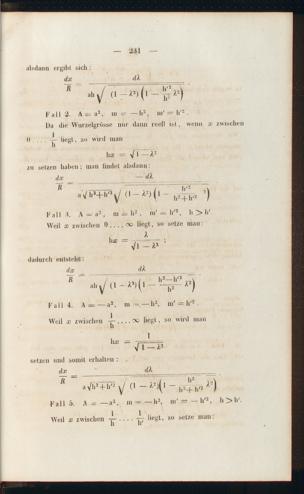 — 231 —
alsdann ergibt sich:
dx/R = dλ / (ah √((1 − λ²)(1 − h'²/h² λ²)))
Fall 2. A = a², m = − h², m' = h'².
Da die Wurzelgrösse nur dann reell ist, wenn x zwischen
0 . . . . 1/h liegt, so wird man
hx = √(1 − λ²)
zu setzen haben; man findet alsdann:
dx/R = − dλ / (a √(h² + h'²) √((1 − λ²)(1 − h'²/(h² + h'²) ²)))
Fall 3. A = a², m = h², m' = h'², h > h'
Weil x zwischen 0 . . . . ∞ liegt, so setze man:
hx = λ/√(1 − λ²) ;
dadurch entsteht:
dx/R = dλ / (ah √((1 − λ²)(1 − (h² − h'²)/h² λ²)))
Fall 4. A = − a², m = − h², m' = h'².
Weil x zwischen 1/h . . . . ∞ liegt, so wird man
hx = 1/√(1 − λ²)
setzen und somit erhalten:
dx/R = dλ / (a √(h² + h'²) √((1 − λ²)(1 − h²/(h² + h'²) λ²)))
Fall 5. A = − a², m = − h², m' = − h'², h > h'.
Weil x zwischen 1/h . . . . 1/h' liegt, so setze man: